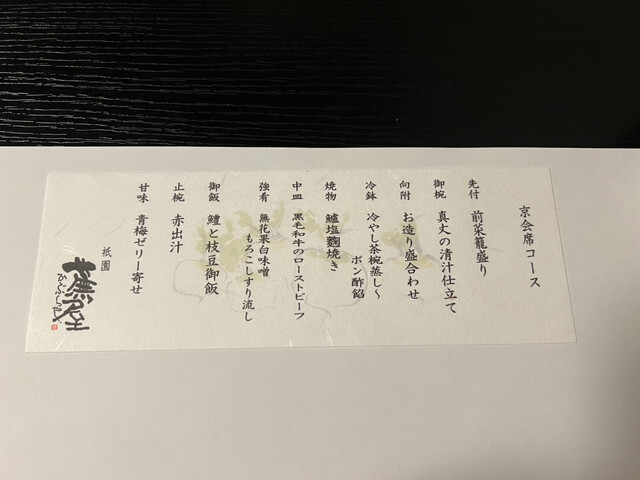 京会席コース
先付 前菜籠盛り
御椀 真丈の清汁仕立て
向附 お造り盛合わせ
冷鉢 冷やし茶椀蒸し〜
ポン酢餡
焼物 鱸塩麴焼き
中皿 黒毛和牛のローストビーフ
強肴 無花果白味噌
もろこしすり流し
御飯 鱧と枝豆御飯
止椀 赤出汁
甘味 青梅ゼリー寄せ
祇園